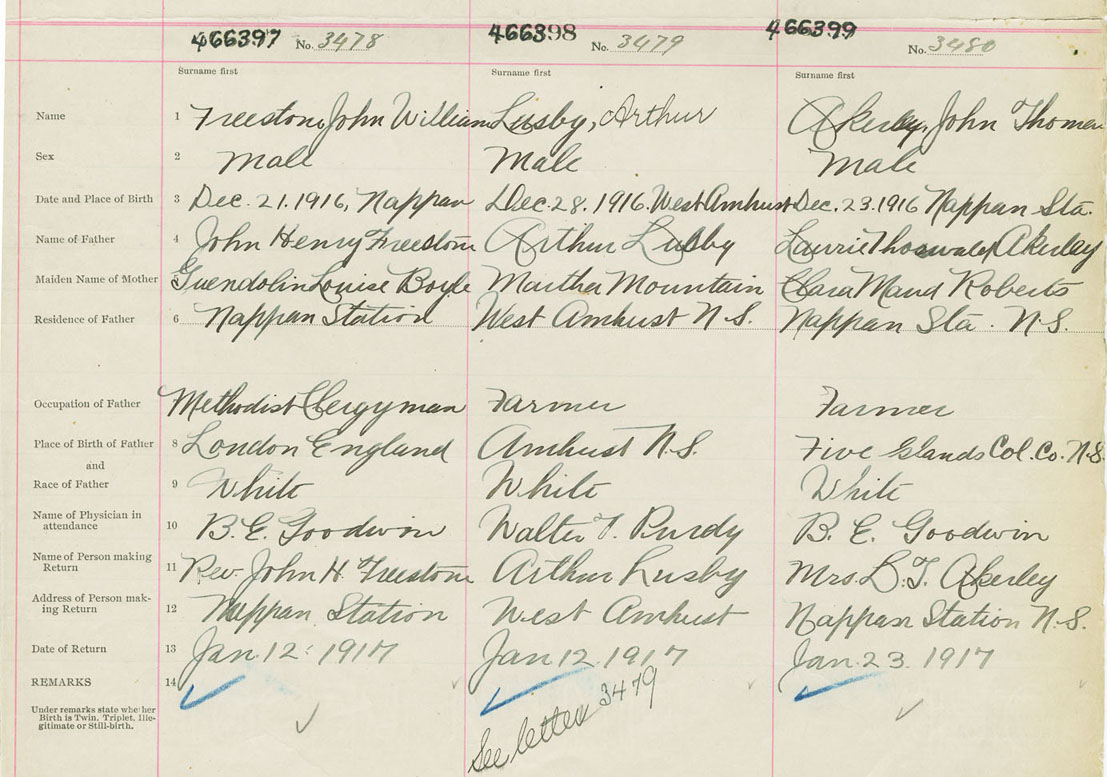 466397 No. 3478 466398 No. 3479 466399 No. 3480
Surname first Surname first Surname first
Name 1 Freestone, John William Lusby, Arthur Akerley, John Thomas
Sex 2 Male Male Male
Date and Place of Birth 3 Dec. 21. 1916, Nappan Dec. 28. 1916. West Amherst Dec. 23. 1916 Nappan Sta.
Name of Father 4 John Henry Freestone Arthur Lusby Laurie Akerley
Maiden Name of Mother 5 Guendolin Louise Boyle Martha Mountain Clara Maud Roberts
Residence of Father 6 Nappan Station West Amherst N.S. Nappan Sta. N.S.
Occupation of Father Methodist Clergyman Farmer Farmer
Place of Birth of Father 8 London England Amherst N.S. Five Islands Col. Co. N.S.
and
Race of Father 9 White White White
Name of Physician in
attendance 10 B. E. Goodwin Walter T. Purdy B. E. Goodwin
Name of Person making
Return 11 Rev. John H. Freestone Arthur Lusby Mrs. L. T. Akerley
Address of Person mak-
ing Return 12 Nappan Station West Amherst Nappan Station N.S.
Date of Return 13 Jan. 12. 1917 Jan 12. 1917 Jan. 23. 1917
REMARKS 14
Under remarks state whether
Birth is Twin, Triplet, Ille-
gitimate or Still-birth.
See letter 3479